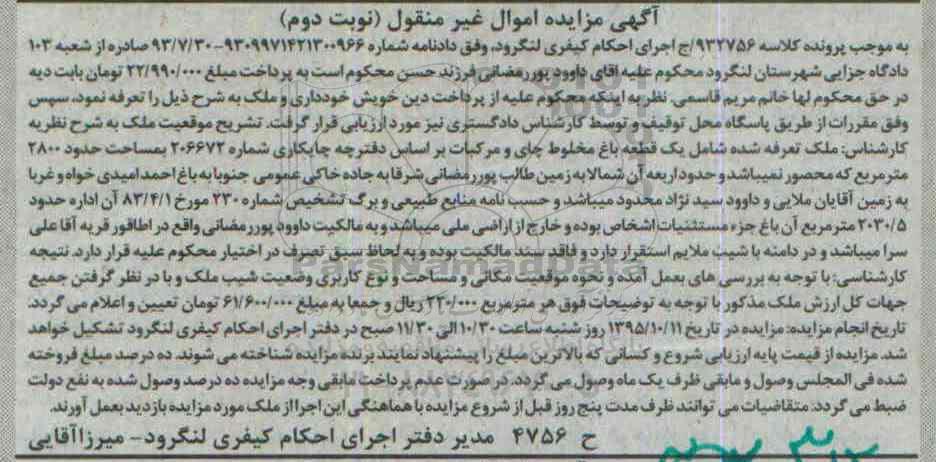 آگهی مزایده اموال غیر منقول (نوبت دوم)
به موجب پرونده کلاسه ۹۳۲۷۵۶/ج اجرای احکام کیفری لنگرود، وفق دادنامه شماره ۹۳۰۹۹۷۱۴۲۱۳۰۰۹۶۶-۹۳/۷/۳۰ صادره از شعبه ۱۰۳
دادگاه جزایی شهرستان لنگرود محکوم علیه آقای داوود پوررمضانی فرزند حسن محکوم است به پرداخت مبلغ ۲۲/۹۹۰/۰۰۰ تومان بابت دیه
در حق محکوم لها خانم مریم قاسمی. نظر به اینکه محکوم علیه از پرداخت دین خویش خودداری و ملک به شرح ذیل را تعرفه نمود، سپس
وفق مقررات از طریق پاسگاه محل توقیف و توسط کارشناس دادگستری نیز مورد ارزیابی قرار گرفت. تشریح موقعیت ملک به شرح نظریه
کارشناس: ملک تعرفه شده شامل یک قطعه باغ مخلوط چای و مرکبات بر اساس دفترچه چایکاری شماره ۲۰۶۶۷۲ بمساحت حدود ۲۸۰۰
متر مربع که محصور نمیباشد و حدود اربعه آن شمالا به زمین طالب پوررمضانی شرقا به جاده خاکی عمومی جنوبا به باغ احمد امیدی خواه و غربا
به زمین آقایان ملایی و داوود سید نژاد محدود میباشد و حسب نامه منابع طبیعی و برگ تشخیص شماره ۲۳۰ مورخ ۸۳/۴/۱ آن اداره حدود
۲۰۳۰/۵ متر مربع آن باغ جزء مستثنیات اشخاص بوده و خارج از اراضی ملی میباشد و به مالکیت داوود پوررمضانی واقع در اطاقور قریه آقا علی
سرا میباشد و در دامنه با شیب ملایم استقرار دارد و فاقد سند مالکیت بوده و به لحاظ سبق تصرف در اختیار محکوم علیه قرار دارد. نتیجه
کارشناسی: با توجه به بررسی های بعمل آمده و نحوه موقعیت مکانی و مساحت و نوع کاربری وضعیت شیب ملک و با در نظر گرفتن جمیع
جهات کل ارزش ملک مذکور با توجه به توضیحات فوق هر متر مربع ۲۲۰/۰۰۰ ریال و جمعا به مبلغ ۶۱/۶۰۰/۰۰۰ تومان تعیین و اعلام می گردد.
تاریخ انجام مزایده: مزایده در تاریخ ۱۳۹۵/۱۰/۱۱ روز شنبه ساعت ۱۰/۳۰ الی ۱۱/۳۰ صبح در دفتر اجرای احکام کیفری لنگرود تشکیل خواهد
شد. مزایده از قیمت پایه ارزیابی شروع و کسانی که بالاترین مبلغ را پیشنهاد نمایند برنده مزایده شناخته می شوند. ده درصد مبلغ فروخته
شده فی المجلس وصول و مابقی ظرف یک ماه وصول می گردد. در صورت عدم پرداخت مابقی وجه مزایده ده درصد وصول شده به نفع دولت
ضبط می گردد. متقاضیات می توانند ظرف مدت پنج روز قبل از شروع مزایده با هماهنگی این اجرا از ملک مورد مزایده بازدید بعمل آورند.
ح ۴۷۵۶ مدیر دفتر اجرای احکام کیفری لنگرود- میرزاآقایی